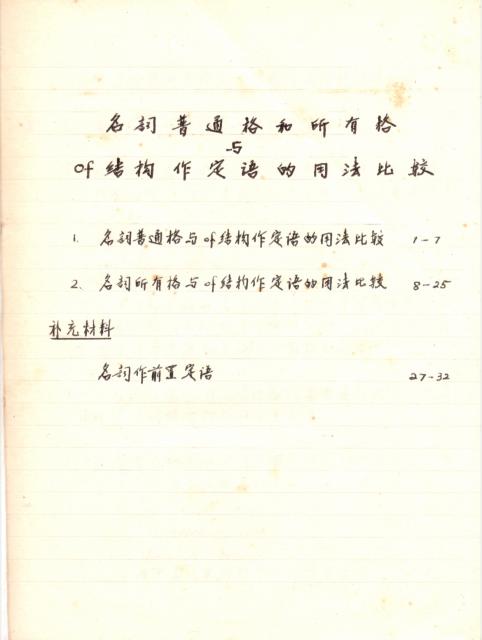 名詞普通格和所有格
与
of结构作定语的用法比较
1. 名詞普通格与of结构作定语的用法比较 1-7
2. 名詞所有格与of结构作定语的用法比较 8-25
补充材料
名詞作前置定语 27-32